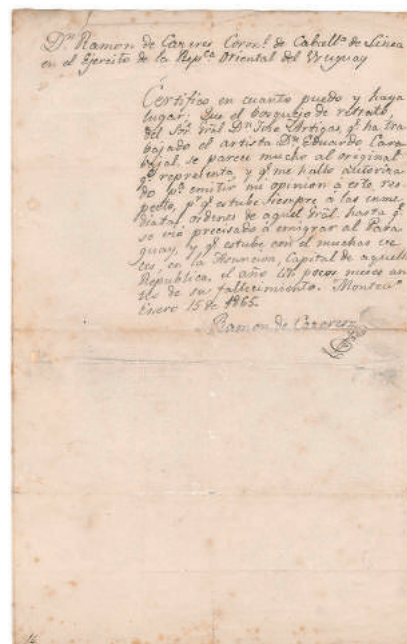 Dn Ramon de Caceres Coronl de Caballa de Linea
en el Ejercito de la Repca Oriental del Uruguay
Certifico en cuanto puedo y haya
lugar: Que el bosquejo de retrato,
del Sor Gral Dn José Artigas, qe ha tra
bajado el artista Dn Eduardo Cara
bajal, se parece mucho al original
qe representa, y qe me hallo autoriza
do pa emitir mi opinion á este res
pecto, pr qe estube siempre a las inme
diatas ordenes de aquel Gral. hasta qe
se vió precisado á emigrar al Para
guay, y qe estube con el muchas ve
ces en la Asuncion, Capital de aquella
República, el año pocos meses an
tes de su fallecimiento. Montevo
Enero 15 de 1865.
Ramon de Caceres